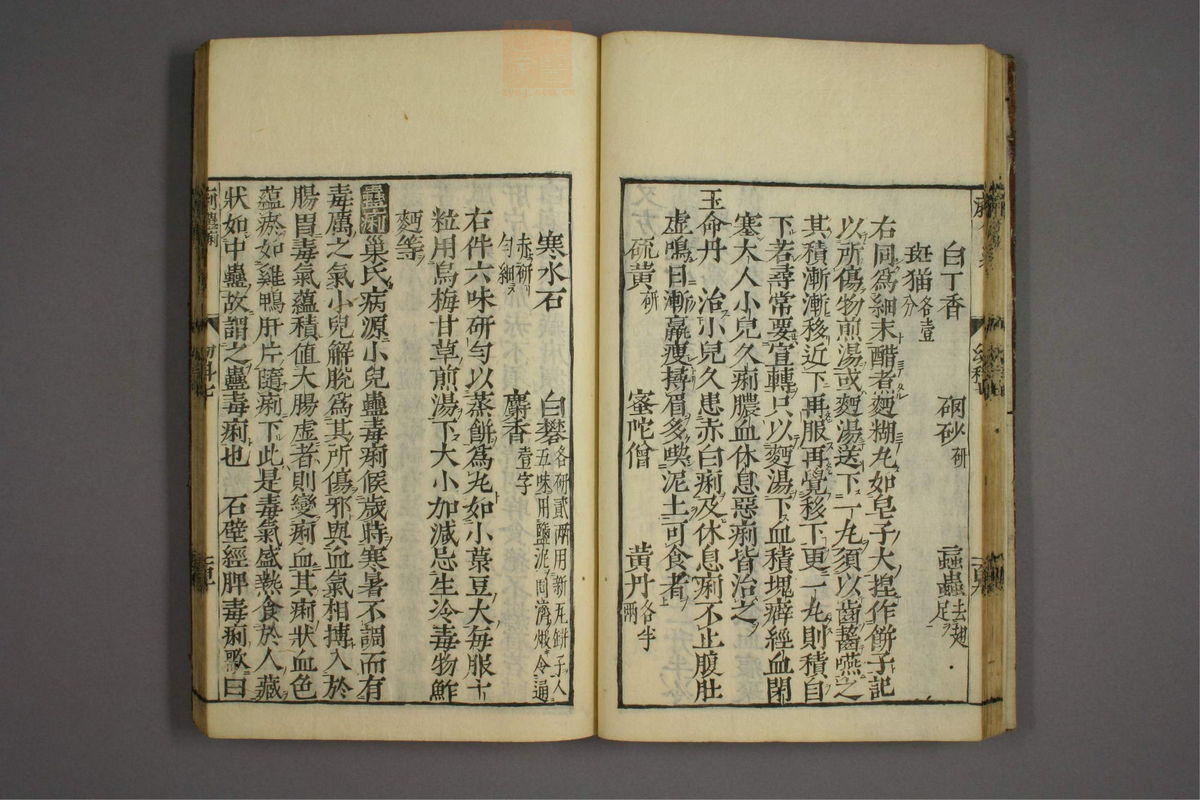 白丁香 硇砂研 蝱蟲去翅足
斑猫各壹分
右同爲細末醋煮麪糊丸如皂子大揑作餅子記
以所傷物煎湯或麪湯送下一丸須以齒齧嚥之
其積漸漸移近下再服再覺移下更一丸則積自
下若尋常要宣轉只以麪湯下血積塊癖經血閉
塞大人小兒久痢膿血休息惡痢皆治之
玉命丹 治小兒久患赤白痢及休息痢不止腹肚
虚鳴日漸羸瘦撏眉多喫泥土可食者
硫黄研 蜜陀僧 黄丹各半兩
寒水石 白礬各研貳兩用新瓦餅子入五味用鹽泥固濟煅令通
赤研匀細 麝香壹字
右件六味研匀以蒸餅爲丸如小菉豆大每服十
粒用烏梅甘草煎湯下大小加減忌生冷毒物鮓
麪等
蠱痢 巢氏病源小兒蠱毒痢候歲時寒暑不調而有
毒厲之氣小兒解脱爲其所傷邪與血氣相搏入於
腸胃毒氣藴積值大腸虚者則變痢血其痢狀血色
藴瘀如雞鴨肝片隨痢下此是毒氣盛熱食於人藏
狀如中蠱故謂之蠱毒痢也 石壁經脾毒痢歌曰